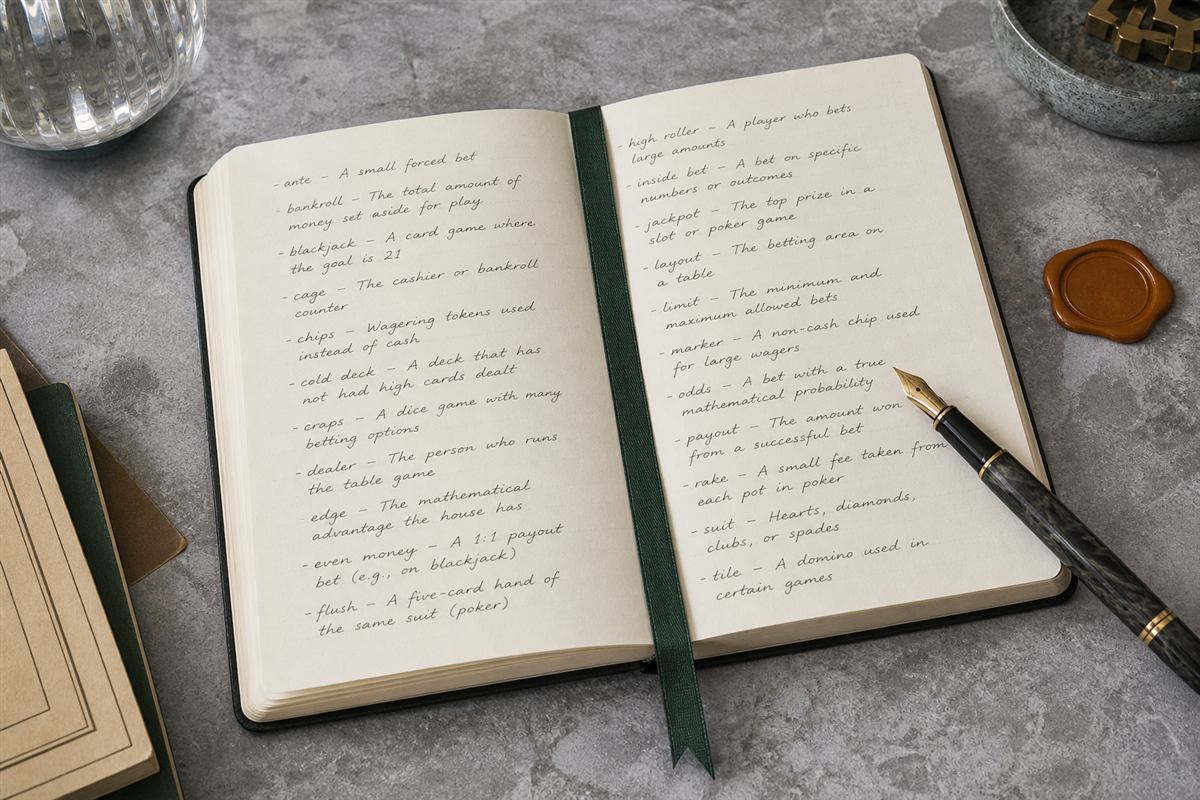 - ante – A small forced bet
- bankroll – The total amount of
money set aside for play
- blackjack – A card game where
the goal is 21
- cage – The cashier or bankroll
counter
- chips – Wagering tokens used
instead of cash
- cold deck – A deck that has
not had high cards dealt
- craps – A dice game with many
betting options
- dealer – The person who runs
the table game
- edge – The mathematical
advantage the house has
- even money – A 1:1 payout
bet (e.g., on blackjack)
- flush – A five-card hand of
the same suit (poker)
- high roller – A player who bets
large amounts
- inside bet – A bet on specific
numbers or outcomes
- jackpot – The top prize in a
slot or poker game
- layout – The betting area on
a table
- limit – The minimum and
maximum allowed bets
- marker – A non-cash chip used
for large wagers
- odds – A bet with a true
mathematical probability
- payout – The amount won
from a successful bet
- rake – A small fee taken from
each pot in poker
- suit – Hearts, diamonds,
clubs, or spades
- tile – A domino used in
certain games